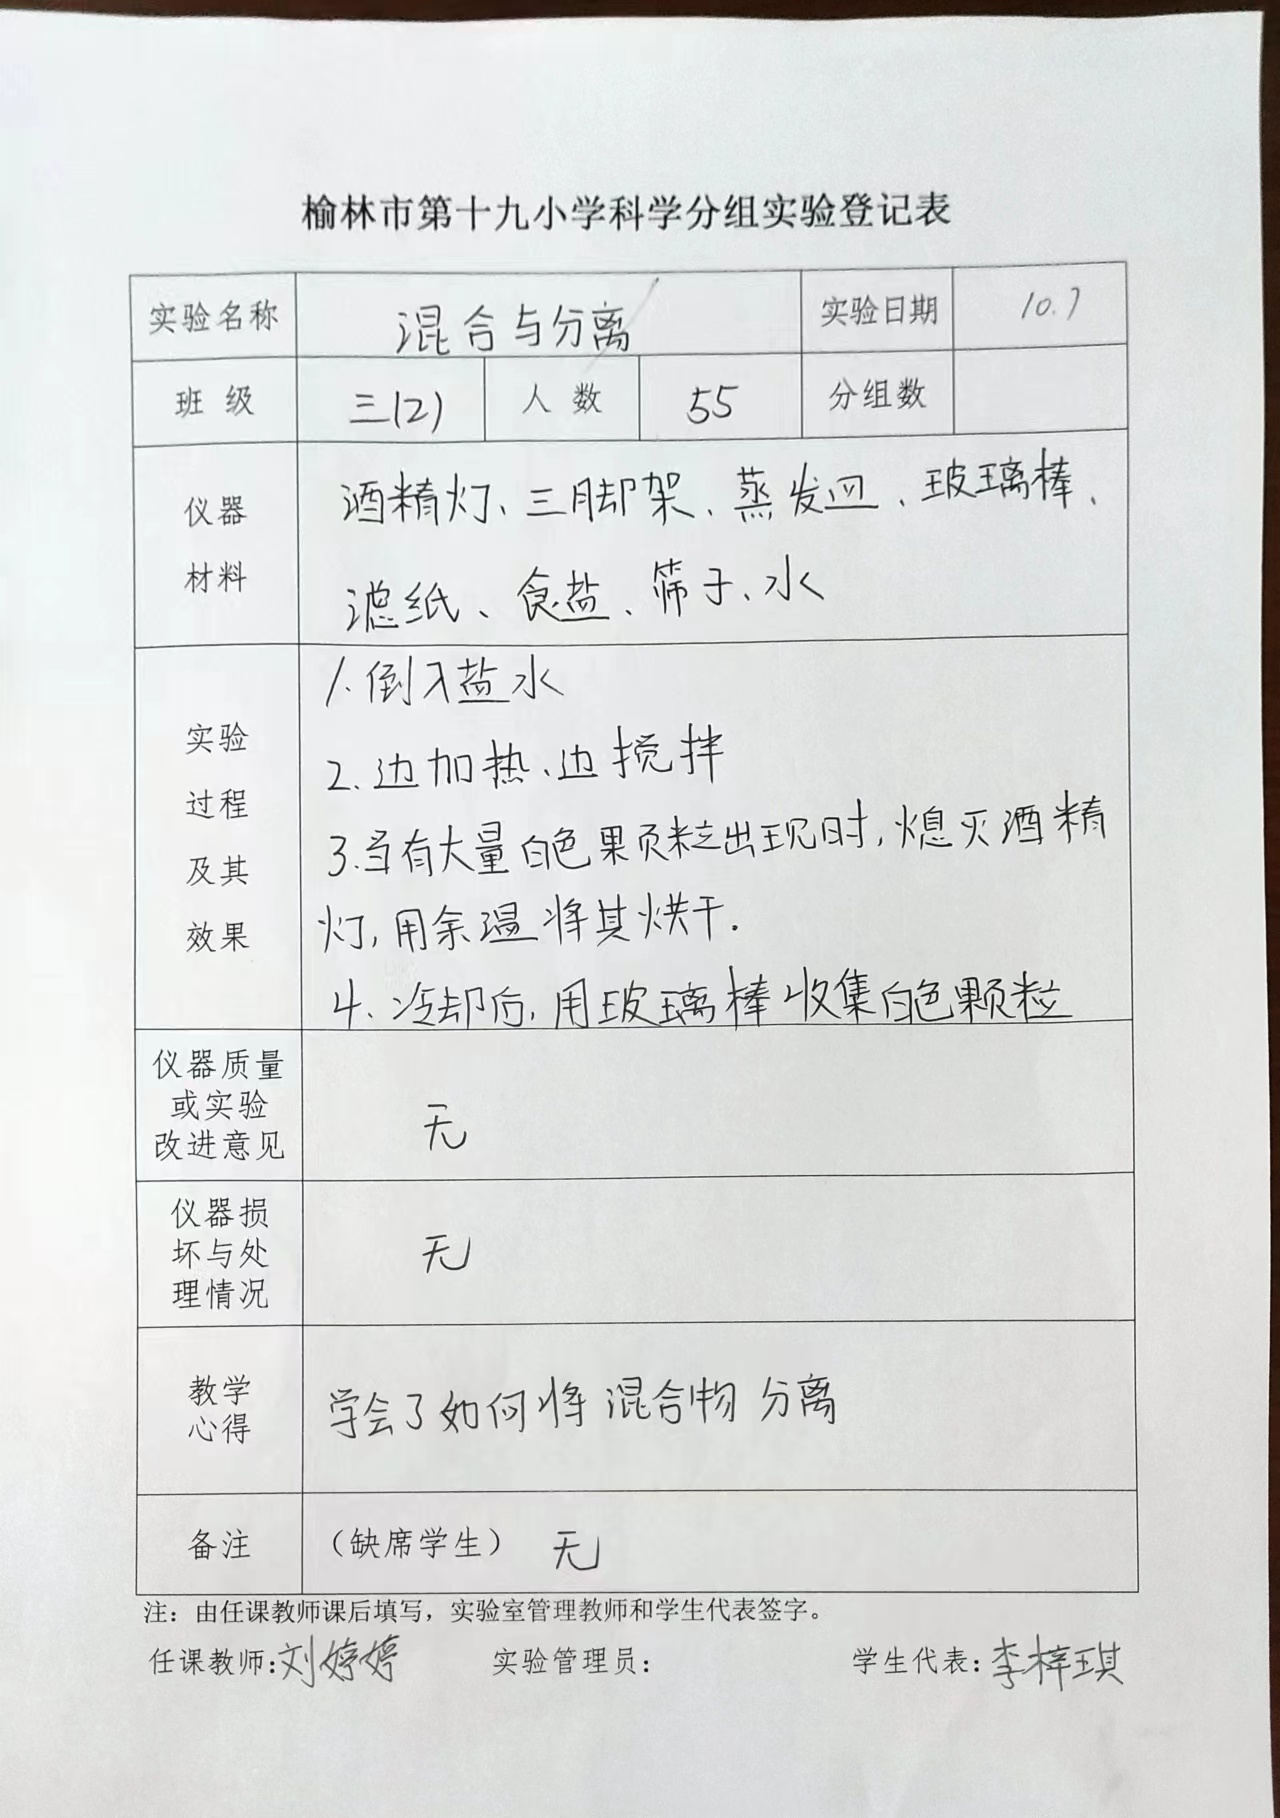 榆林市第十九小学科学分组实验登记表
实验名称 混合与分离 实验日期 10.7
班 级 三(2) 人 数 55 分组数
仪器
材料
酒精灯、三脚架、蒸发皿、玻璃棒、
滤纸、食盐、筛子、水
实验
过程
及其
效果
1.倒入盐水
2.边加热、边搅拌
3.当有大量白色颗粒出现时,熄灭酒精
灯,用余温将其烘干.
4.冷却后,用玻璃棒收集白色颗粒
仪器质量
或实验
改进意见
无
仪器损
坏与处
理情况
无
教学
心得
学会了如何将混合物分离
备注 (缺席学生) 无
注：由任课教师课后填写，实验室管理教师和学生代表签字。
任课教师:刘婷婷 实验管理员: 学生代表:李梓琪